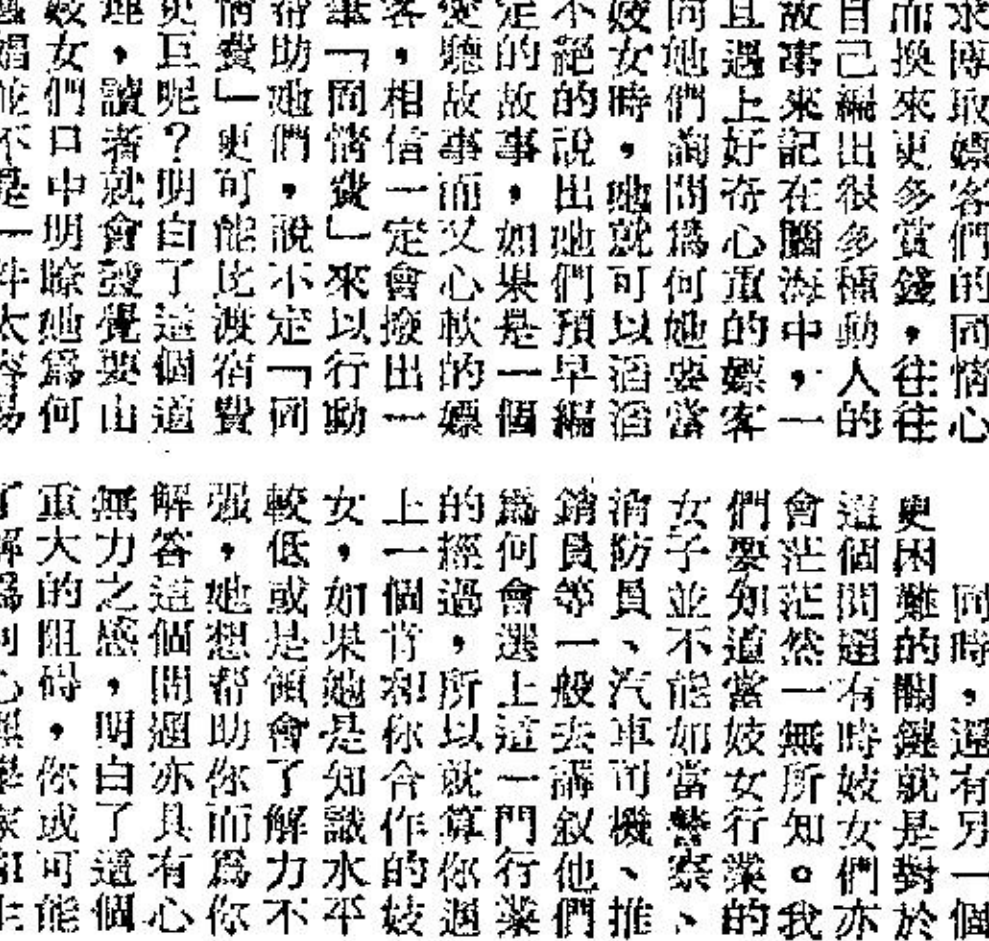 求博取嫖客們的同情心
而換來更多賞錢，往往
自己編出很多種動人的
故事來記在腦海中，一
且遇上好奇心重的嫖客
同她們詢問爲何她要當
妓女時，她就可以滔滔
不絕的說出她們預早編
定的故事，如果是一個
愛聽故事而又心軟的嫖
客，相信一定會撥出一
筆「同情費」來以行動
幫助她們，說不定「同
情費」更可能比渡宿費
更巨呢？明白了這個道
理，讀者就會發覺要由
妓女們口中明瞭她爲何
娼並不是一件太容易
同時，還有另一個
更困難的關鍵就是對於
這個問題有時妓女們亦
會茫茫然一無所知。我
們要知道當妓女行業的
女子並不能如當警察、
消防員、汽車司機、推
銷員等一般去講敘他們
爲何會選上這一門行業
的經過，所以就算你遇
上一個肯和你合作的妓
女，如果她是知識水平
較低或是領會了解力不
强，她想幫助你而爲你
解答這個問題亦具有心
無力之感，明白了這個
重大的阻碍，你或可能
了解爲何心理學家和